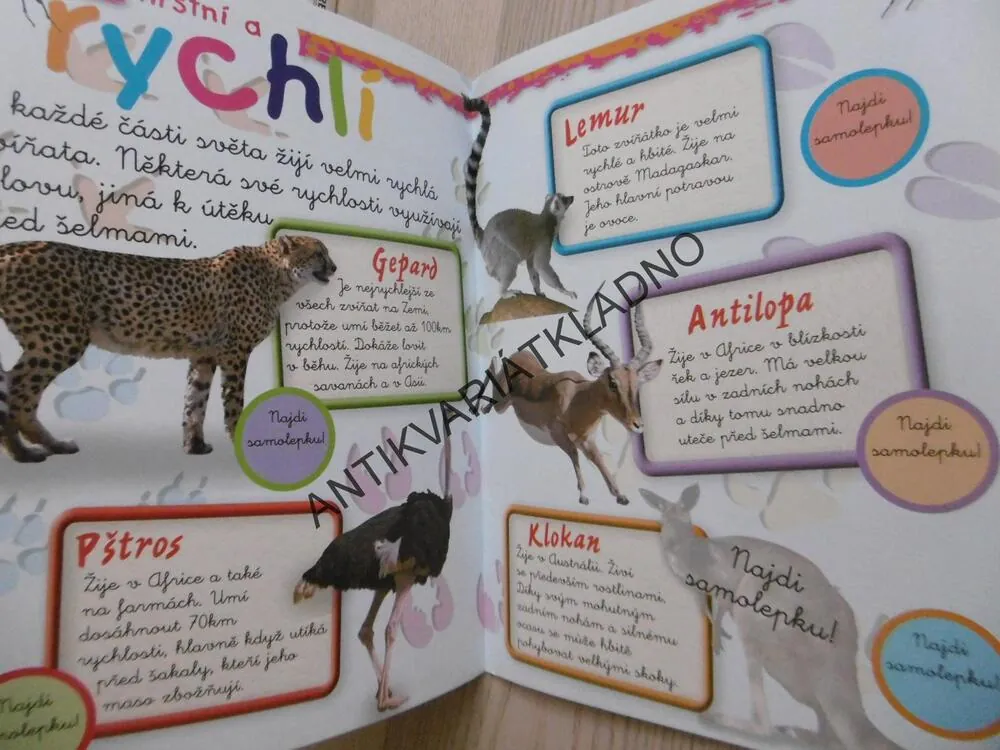 rstní a
rychlí
každé části světa žijí velmi rychlá
Některá své rychlosti využívají
jiná k útěku
šelmami.
Gepard
Je nejrychlejší ze
všech zvířat na Zemi,
protože umí běžet až 100km
rychlostí. Dokáže lovit
v běhu. Žije na afrických
savanách a v Asii.
Najdi
samolepku!
Pštros
Žije v Africe a také
na farmách. Umí
dosáhnout 70km
rychlosti, hlavně když utíká
před šakaly, kteří jeho
maso zbožňují.
Najdi
samolepku!
Lemur
Toto zvířátko je velmi
rychlé a hbité. Žije na
ostrově Madagaskar.
Jeho hlavní potravou
je ovoce.
Najdi
samolepku!
Antilopa
Žije v Africe v blízkosti
řek a jezer. Má velkou
sílu v zadních nohách
a díky tomu snadno
uteče před šelmami.
Najdi
samolepku!
Klokan
Žije v Austrálii. Živí
se především rostlinami.
Díky svým mohutným
zadním nohám a silnému
ocasu se může hbitě
pohybovat velkými skoky.
Najdi
samolepku!
Najdi
samolepku!
ANTIKVARIÁTKLADNO